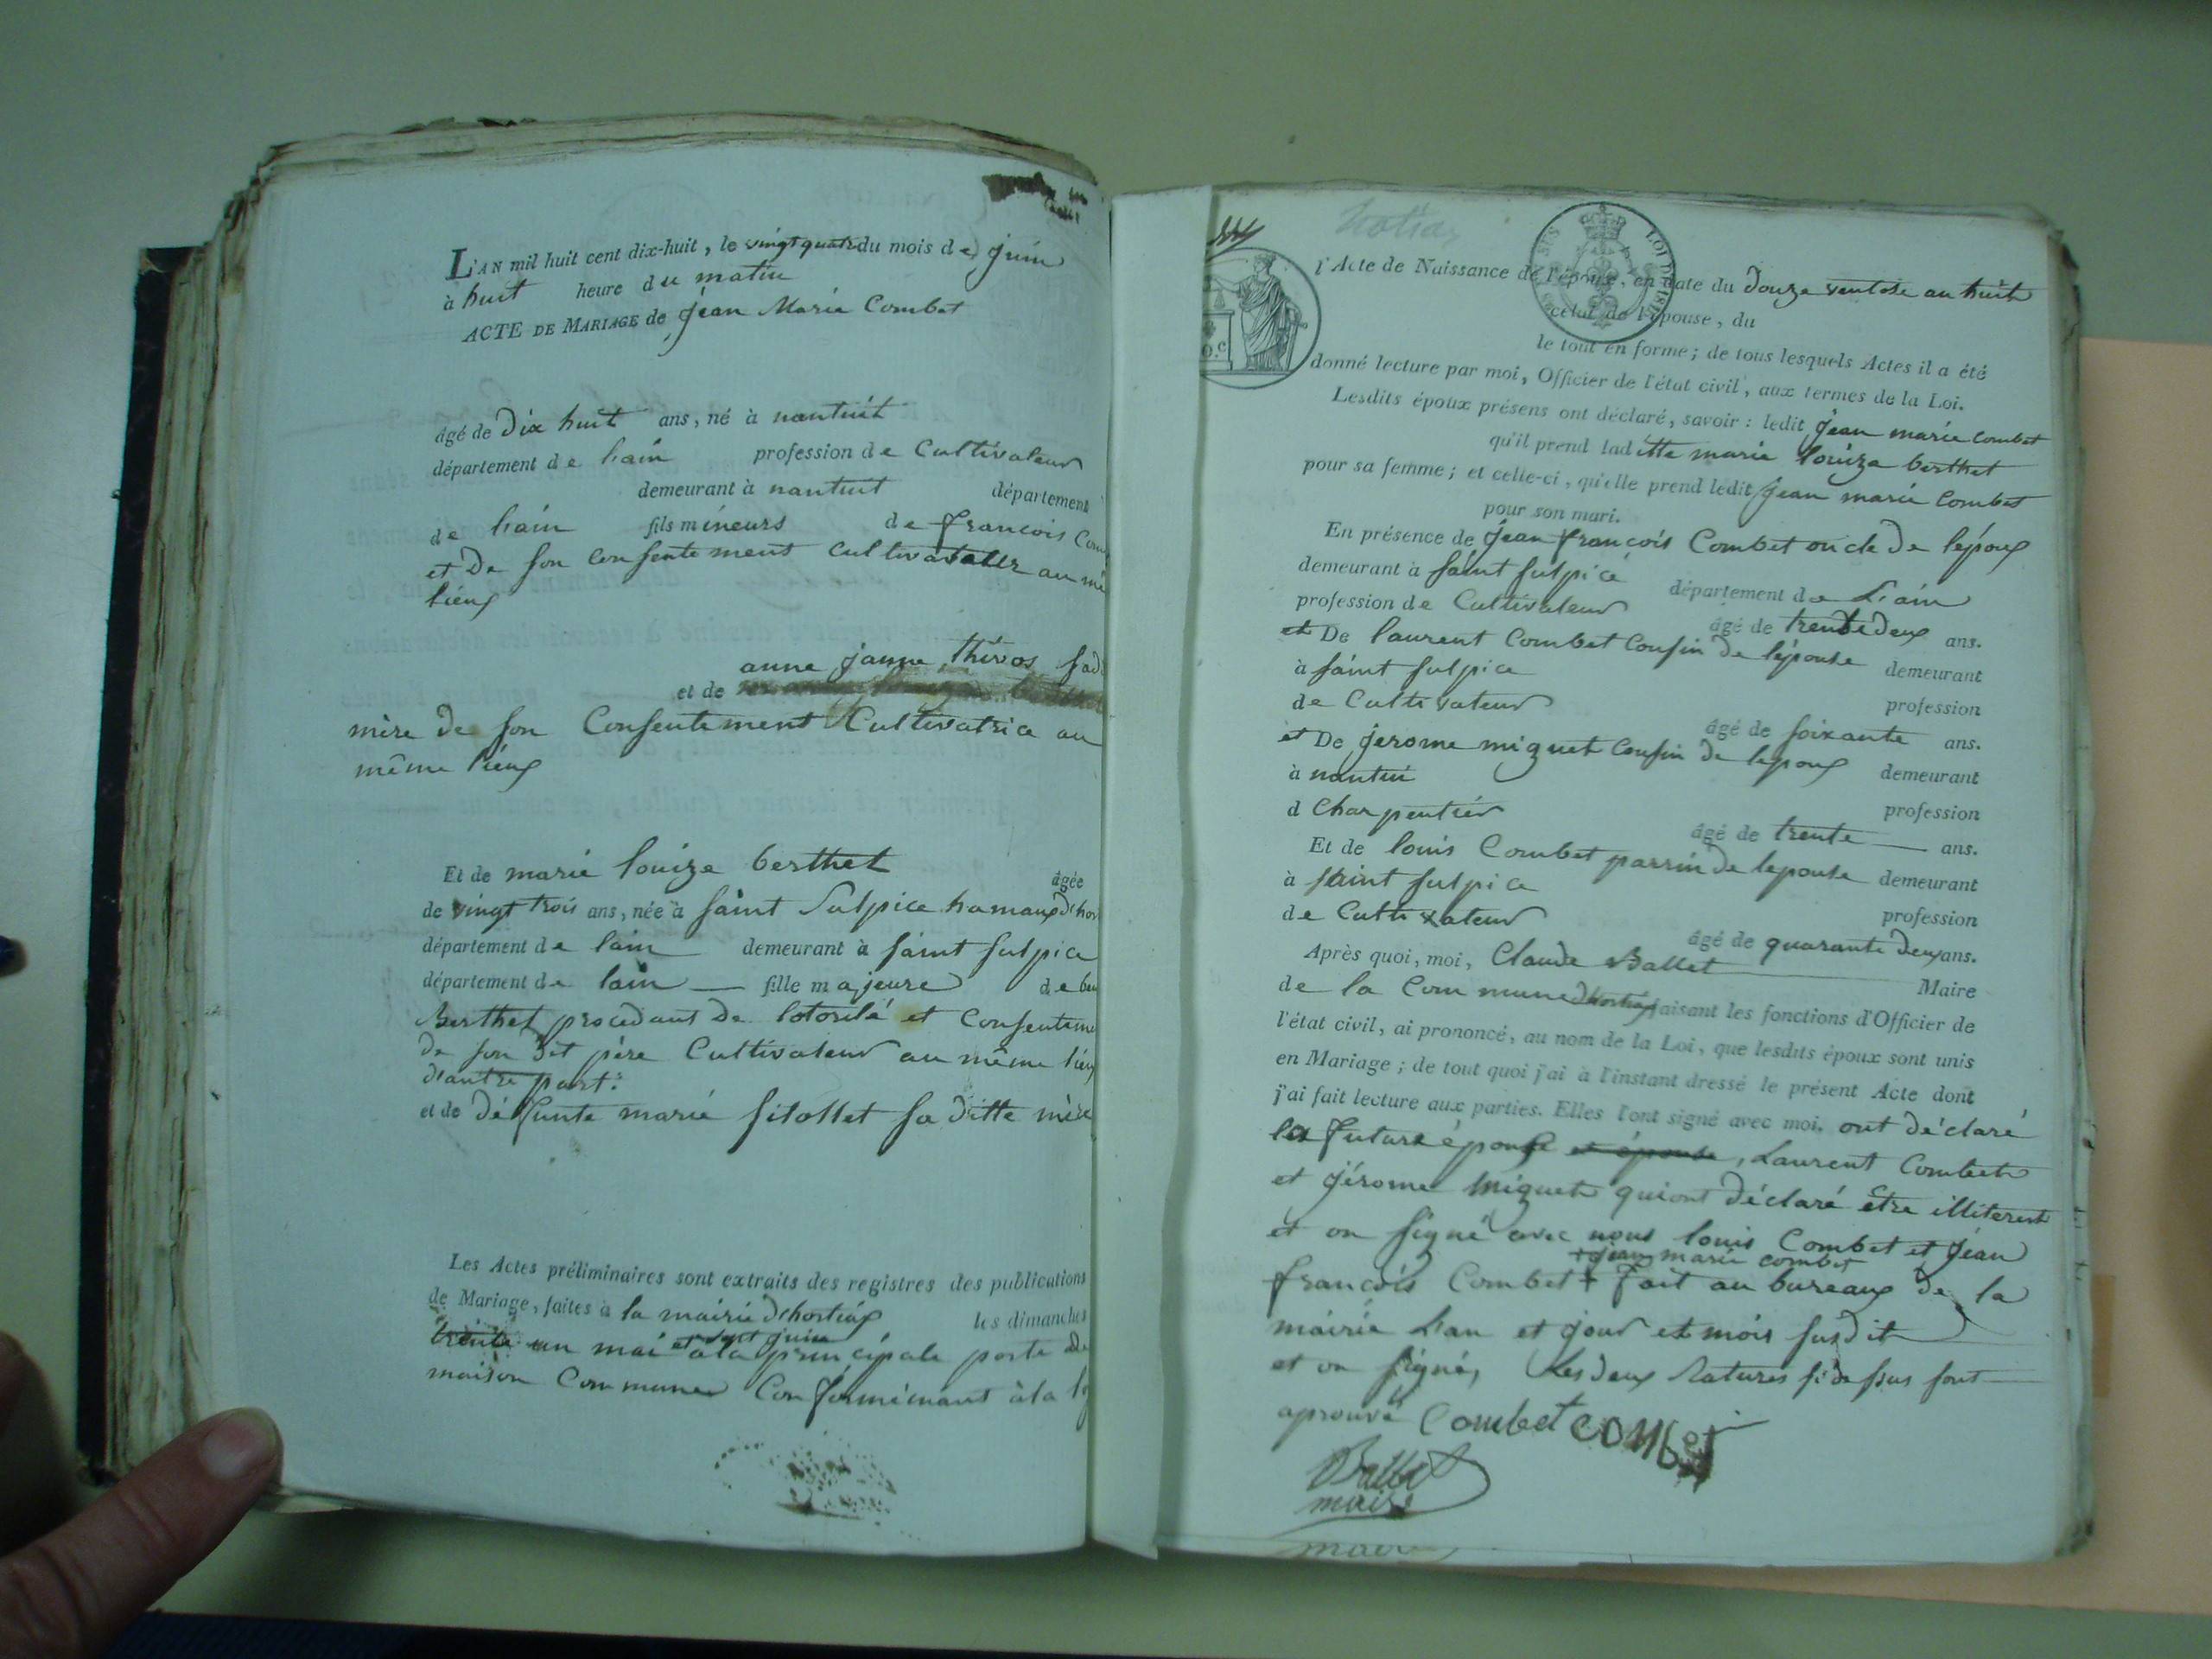 L'AN mil huit cent dix-huit, le vingt quatre du mois de juin
à huit heure du matin
ACTE DE MARIAGE de jean Marie Combet
âgé de dix huit ans, né à nantuit
département de lain profession de Cultivateur
demeurant à nantuit département
de lain fils mineurs de francois
et de son consentement cultivateur au
lieux
anne janne thivos
et de
mère de son Consentement Cultivatrice au
même lieux
Et de marie louize berthet âgée
de vingt trois ans, née à saint Sulpice hamaux
département de lain demeurant à saint sulpice
département de lain fille majeure de
Berthet procedant de lotorité et
de son dit père Cultivateur au même lieux
d'autre part:
et de défunte marie sitollet sa ditte mère
Les Actes préliminaires sont extraits des registres des publications
de Mariage, faites à la mairie d'hortiax les dimanches
trente un mai et sept juin a la principale porte de
maison Commune Conformémant à la
l'Acte de Naissance de l'époux, en date du douze ventose an huit
celui de l'épouse, du
le tout en forme; de tous lesquels Actes il a été
donné lecture par moi, Officier de l'état civil, aux termes de la Loi.
Lesdits époux présens ont déclaré, savoir: ledit jean marie combet
qu'il prend laditte marie louize berthet
pour sa femme; et celle-ci, qu'elle prend ledit jean marie combet
pour son mari.
En présence de jean francois Combet oncle de lepoux
demeurant à saint sulpice département de Lain
profession de Cultivateur âgé de trente deux ans.
et De laurent Combet Cousin de lépouse demeurant
à saint sulpice profession
de Cultivateur âgé de soixante ans.
et De jerome miguet Cousin de lepoux demeurant
à nantui profession
d Charpentier âgé de trente ans.
Et de louis Combet parrin de lepouse demeurant
à saint sulpice profession
de Cultivateur âgé de quarante deux ans.
Après quoi, moi, Claude Ballet Maire
de la Commune d'hortiax faisant les fonctions d'Officier de
l'état civil, ai prononcé, au nom de la Loi, que lesdits époux sont unis
en Mariage; de tout quoi j'ai à l'instant dressé le présent Acte dont
j'ai fait lecture aux parties. Elles l'ont signé avec moi. ont déclaré
la future épouse et épouse, Laurent Combet
et jérome miguet qui ont déclaré etre illiterest
et on signé avec nous louis Combet et jean
+ jean marie combet
francois Combet + fait au bureaux de la
mairie L'an et jour et mois susdit
et on signé, Les deux Ratures si dessus sont
aprouvé Combet COMBet
Ballet
maire
mair